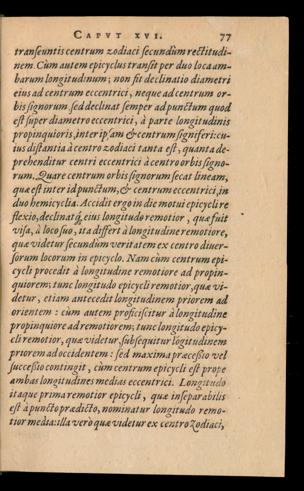 CAPVT XVI. 77
transeuntis centrum zodiaci secundùm rectitudi-
nem. Cùm autem epicyclus transit per duo loca am-
barum longitudinum; non fit declinatio diametri
eius ad centrum eccentrici, neque ad centrum or-
bis signorum, sed declinat semper ad punctum quod
est super diametro eccentrici, à parte longitudinis
propinquioris, inter ipsam & centrum signiferi: cu-
ius distantia à centro zodiaci tanta est, quanta de-
prehenditur centri eccentrici à centro orbis signo-
rum. Quare centrum orbis signorum secat lineam,
quæ est inter id punctum, & centrum eccentrici, in
duo hemicyclia. Accidit ergo in die motui epicycli re
flexio, declinatq́; eius longitudo remotior, quæ fuit
visa, à loco suo, ita differt à longitudine remotiore,
quæ videtur secundùm veritatem ex centro diuer-
sorum locorum in epicyclo. Nam cùm centrum epi-
cycli procedit à longitudine remotiore ad propin-
quiorem; tunc longitudo epicycli remotior, quæ vi-
detur, etiam antecedit longitudinem priorem ad
orientem: cùm autem proficiscitur à longitudine
propinquiore ad remotiorem; tunc longitudo epicy-
cli remotior, quæ videtur, subsequitur lōgitudinem
priorem ad occidentem: sed maxima præcessio vel
successio contingit, cùm centrum epicycli est prope
ambas longitudines medias eccentrici. Longitudo
itaque prima remotior epicycli, quæ inseparabilis
est à puncto prædicto, nominatur longitudo remo-
tior media: illa verò quæ videtur ex centro Zodiaci,